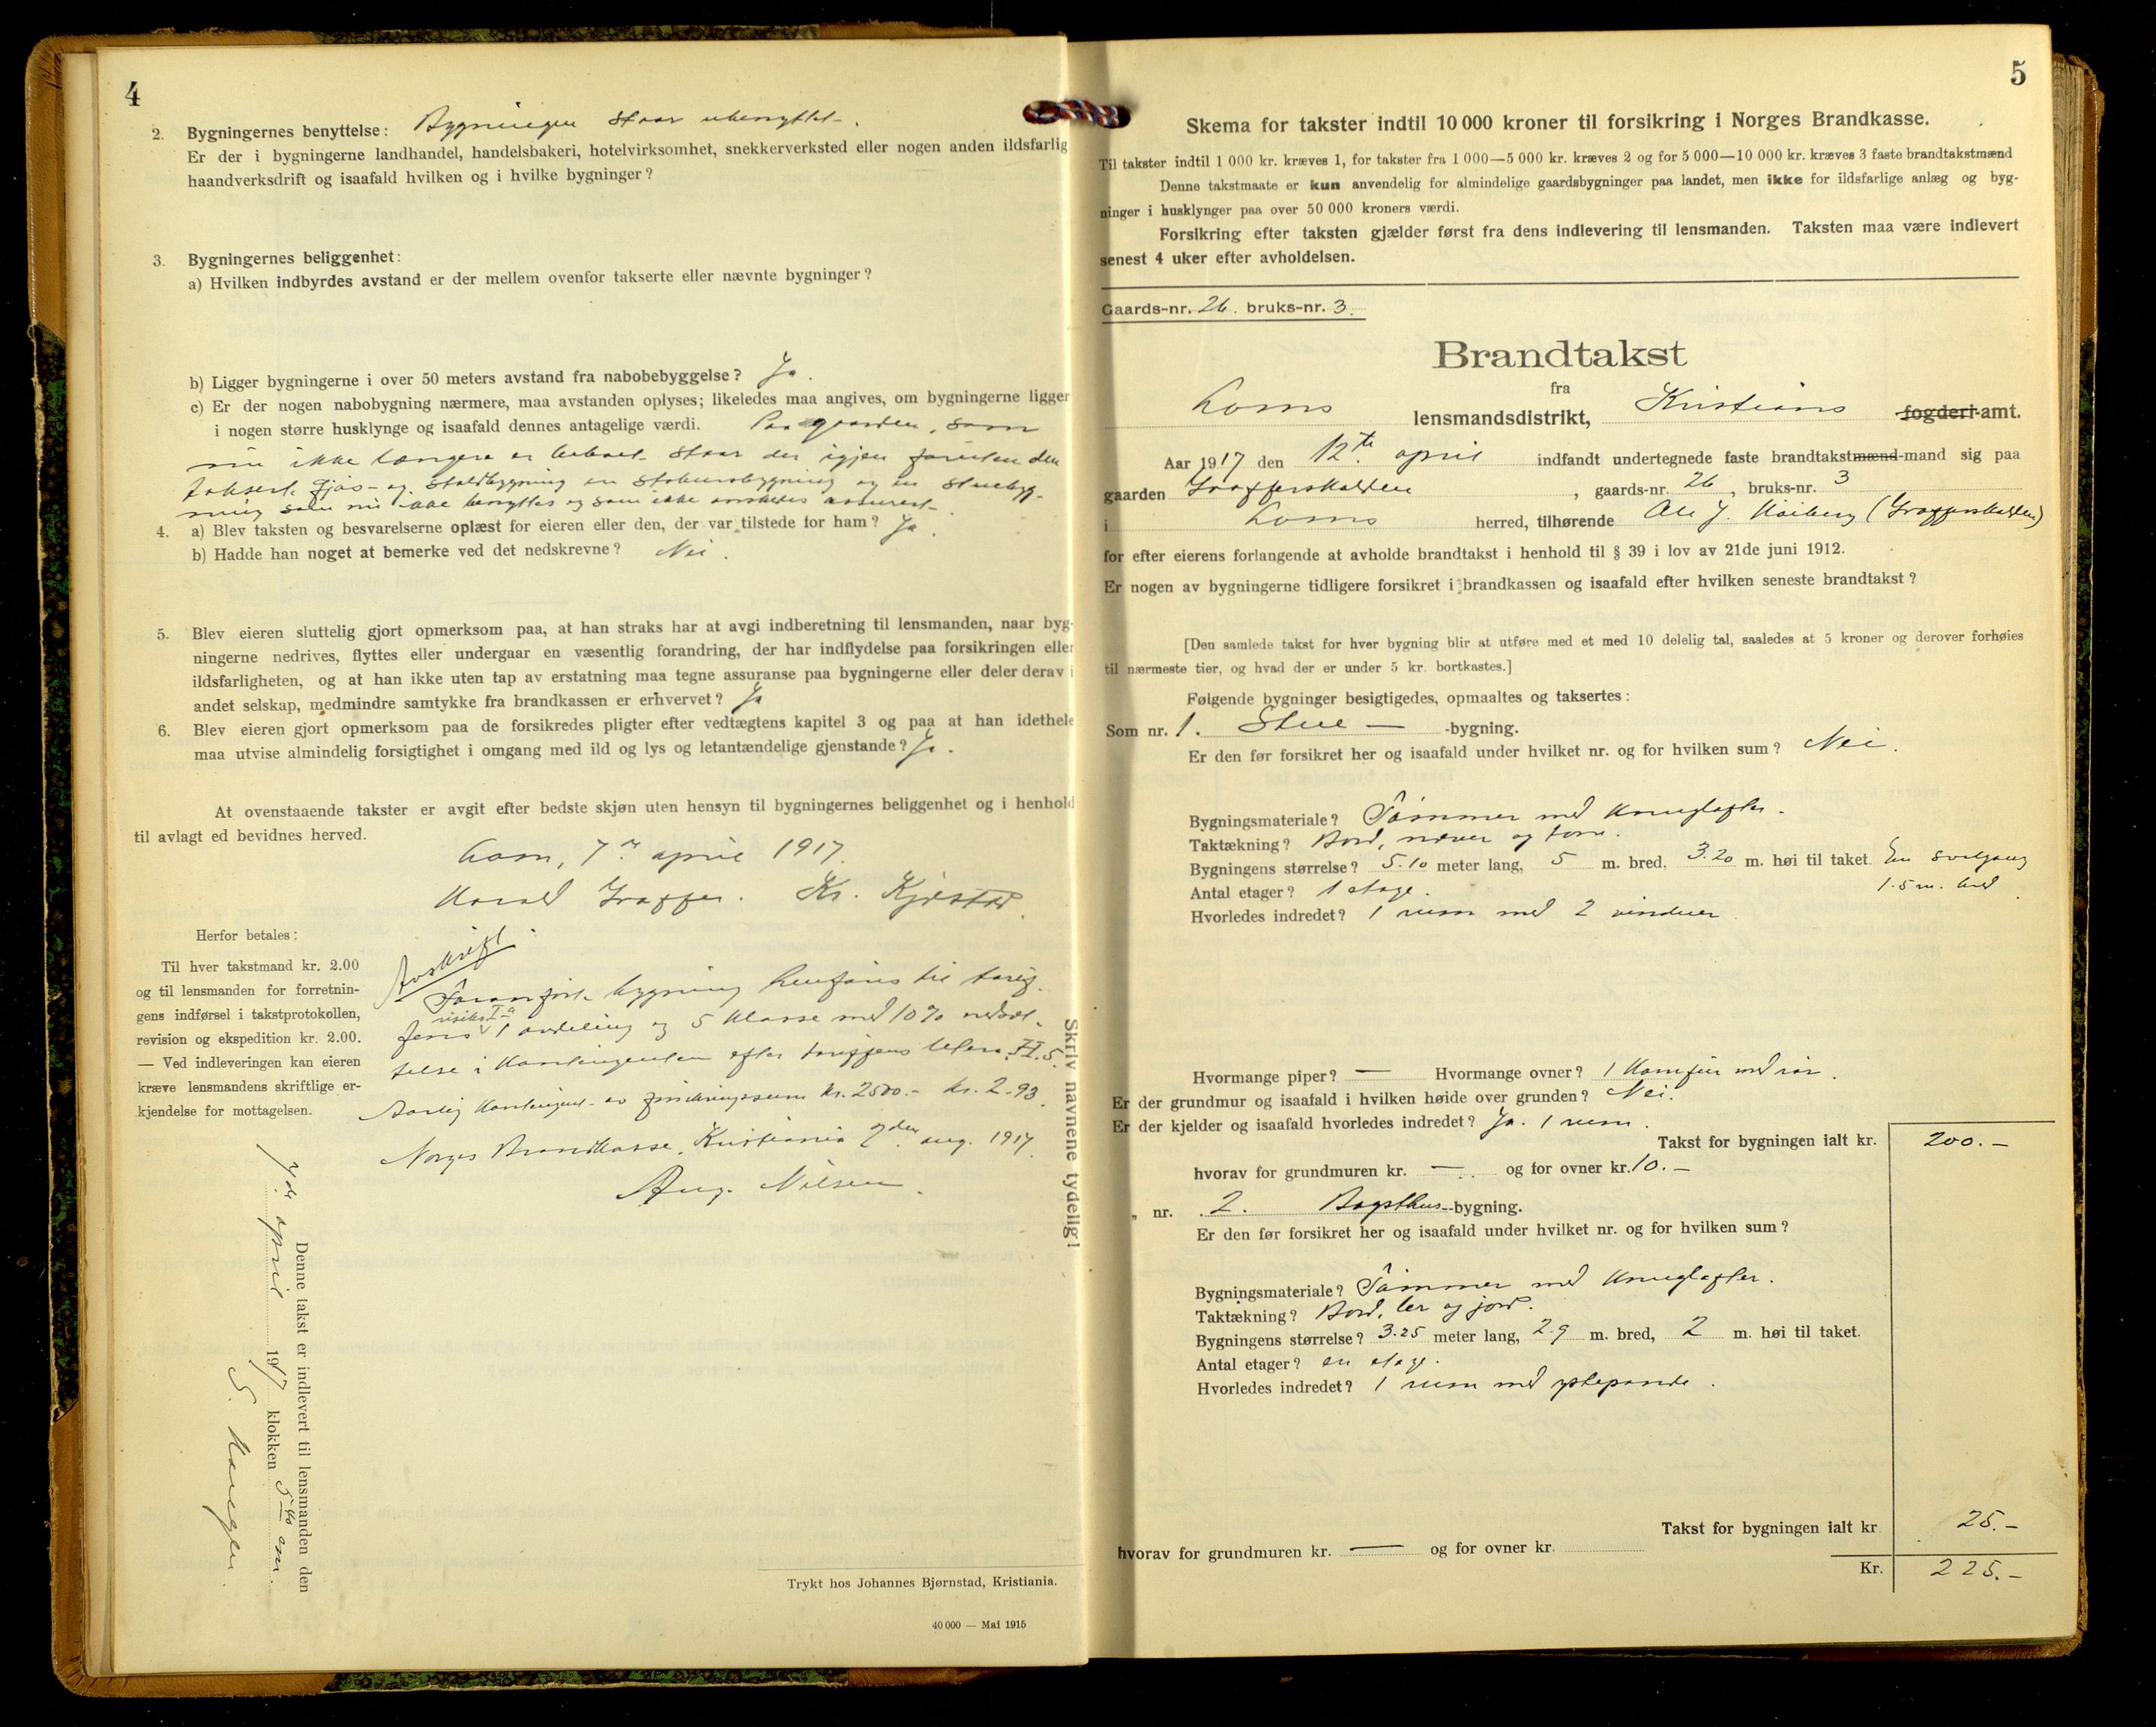 4
2. Bygningernes benyttelse: Bygningen staar ubenyttet.
Er der i bygningerne landhandel, handelsbakeri, hotelvirksomhet, snekkerverksted eller nogen anden ildsfarlig
haandverksdrift og isaafald hvilken og i hvilke bygninger?
3. Bygningernes beliggenhet:
a) Hvilken indbyrdes avstand er der mellem ovenfor takserte eller nævnte bygninger?
b) Ligger bygningerne i over 50 meters avstand fra nabobebyggelse? Ja.
c) Er der nogen nabobygning nærmere, maa avstanden oplyses; likeledes maa angives, om bygningerne ligger
i nogen større husklynge og isaafald dennes antagelige værdi. Paa gaarden, som
nu ikke længere er beboet staar der igjen foruten den
takserte fjøs- og staldbygning en stabursbygning og en stuebyg-
ning som nu ikke benyttes og som ikke ønskedes assurert.
4. a) Blev taksten og besvarelserne oplæst for eieren eller den, der var tilstede for ham? Ja.
b) Hadde han noget at bemerke ved det nedskrevne? Nei.
5. Blev eieren sluttelig gjort opmerksom paa, at han straks har at avgi indberetning til lensmanden, naar byg-
ningerne nedrives, flyttes eller undergaar en væsentlig forandring, der har indflydelse paa forsikringen eller
ildsfarligheten, og at han ikke uten tap av erstatning maa tegne assuranse paa bygningerne eller deler derav i
andet selskap, medmindre samtykke fra brandkassen er erhvervet? Ja
6. Blev eieren gjort opmerksom paa de forsikredes pligter efter vedtægtens kapitel 3 og paa at han idethele
maa utvise almindelig forsigtighet i omgang med ild og lys og letantændelige gjenstande? Ja.
At ovenstaaende takster er avgit efter bedste skjøn uten hensyn til bygningernes beliggenhet og i henhold
til avlagt ed bevidnes herved.
Lom, 7de april 1917.
Harald Graffer. Kr. Kjæstad.
Herfor betales:
Til hver takstmand kr. 2.00
og til lensmanden for forretnin-
gens indførsel i takstprotokollen,
revision og ekspedition kr. 2.00.
— Ved indleveringen kan eieren
kræve lensmandens skriftlige er-
kjendelse for mottagelsen.
Avskrift.
Foranførte bygning henføres til tarif-
fens risiko Ia 1 avdeling og 5 klasse med 10% nedsæt-
telse i kontingenten efter tariffens litera II.5.
Aarlig kontingent av forsikringssum kr. 2500.- kr. 2.93.
Norges Brandkasse, Kristiania 7den aug. 1917.
Aug. Nilsen.
Denne takst er indlevert til lensmanden den
7de april 1917 klokken 5 em.
Skriv navnene tydelig!
Trykt hos Johannes Bjørnstad, Kristiania.
40 000 — Mai 1915
5
Skema for takster indtil 10 000 kroner til forsikring i Norges Brandkasse.
Til takster indtil 1 000 kr. kræves 1, for takster fra 1 000—5 000 kr. kræves 2 og for 5 000—10 000 kr. kræves 3 faste brandtakstmænd
Denne takstmaate er kun anvendelig for almindelige gaardsbygninger paa landet, men ikke for ildsfarlige anlæg og byg-
ninger i husklynger paa over 50 000 kroners værdi.
Forsikring efter taksten gjælder først fra dens indlevering til lensmanden. Taksten maa være indlevert
senest 4 uker efter avholdelsen.
Gaards-nr. 26. bruks-nr. 3.
Brandtakst
fra
Loms lensmandsdistrikt, Kristians fogderi-amt.
Aar 1917 den 12te april indfandt undertegnede faste brandtakstmænd-mand sig paa
gaarden Graffersködden, gaards-nr. 26, bruks-nr. 3
i Loms herred, tilhørende Ole J.
for efter eierens forlangende at avholde brandtakst i henhold til § 39 i lov av 21de juni 1912.
Er nogen av bygningerne tidligere forsikret i brandkassen og isaafald efter hvilken seneste brandtakst?
[Den samlede takst for hver bygning blir at utføre med et med 10 delelig tal, saaledes at 5 kroner og derover forhøies
til nærmeste tier, og hvad der er under 5 kr. bortkastes.]
Følgende bygninger besigtigedes, opmaaltes og taksertes:
Som nr. 1. Stue — -bygning.
Er den før forsikret her og isaafald under hvilket nr. og for hvilken sum? Nei.
Bygningsmateriale? Tømmer med knuglafter.
Taktækning? Bord, næver og torv.
Bygningens størrelse? 5.10 meter lang, 5 m. bred, 3.20 m. høi til taket. En svalgang
1.5 m. bred
Antal etager? 1 etage.
Hvorledes indredet? 1 rum med 2 vinduer
Hvormange piper? — Hvormange ovner? 1 komfur med rør.
Er der grundmur og isaafald i hvilken høide over grunden? Nei.
Er der kjelder og isaafald hvorledes indredet? Ja. 1 rum.
Takst for bygningen ialt kr. 200.—
hvorav for grundmuren kr. — og for ovner kr. 10.—
„ nr. 2. -bygning.
Er den før forsikret her og isaafald under hvilket nr. og for hvilken sum?
Bygningsmateriale? Tømmer med knuglafter.
Taktækning? Bord, ler og jord.
Bygningens størrelse? 3.25 meter lang, 2.9 m. bred, 2 m. høi til taket.
Antal etager? en etage.
Hvorledes indredet? 1 rum med ystepande.
Takst for bygningen ialt kr 25.—
hvorav for grundmuren kr. — og for ovner kr.
Kr. 225.—